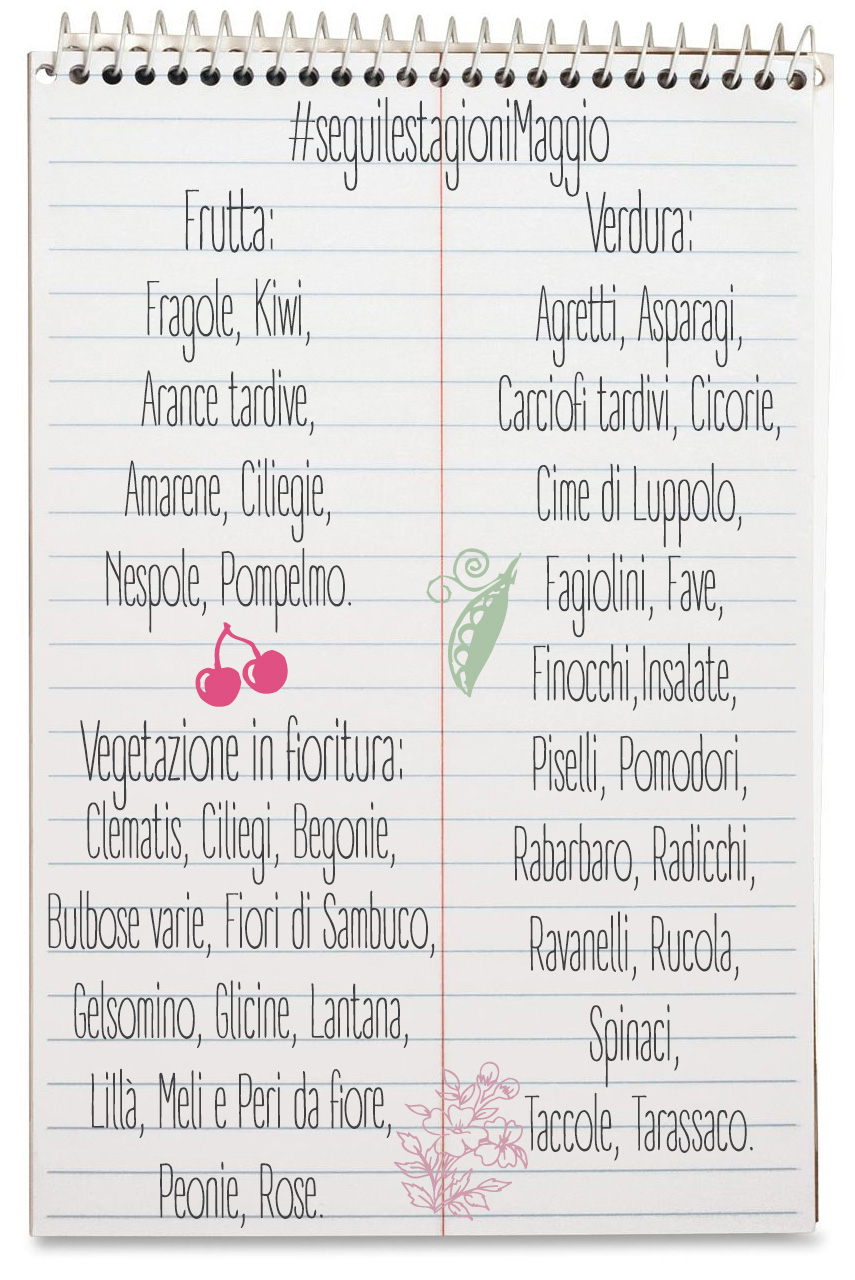 #seguilestagioniMaggio
Frutta:
Fragole, Kiwi,
Arance tardive,
Amarene, Ciliegie,
Nespole, Pompelmo.
Vegetazione in fioritura:
Clematis, Ciliegi, Begonie,
Bulbose varie, Fiori di Sambuco,
Gelsomino, Glicine, Lantana,
Lillà, Meli e Peri da fiore,
Peonie, Rose.
Verdura:
Agretti, Asparagi,
Carciofi tardivi, Cicorie,
Cime di Luppolo,
Fagiolini, Fave,
Finocchi,Insalate,
Piselli, Pomodori,
Rabarbaro, Radicchi,
Ravanelli, Rucola,
Spinaci,
Taccole, Tarassaco.